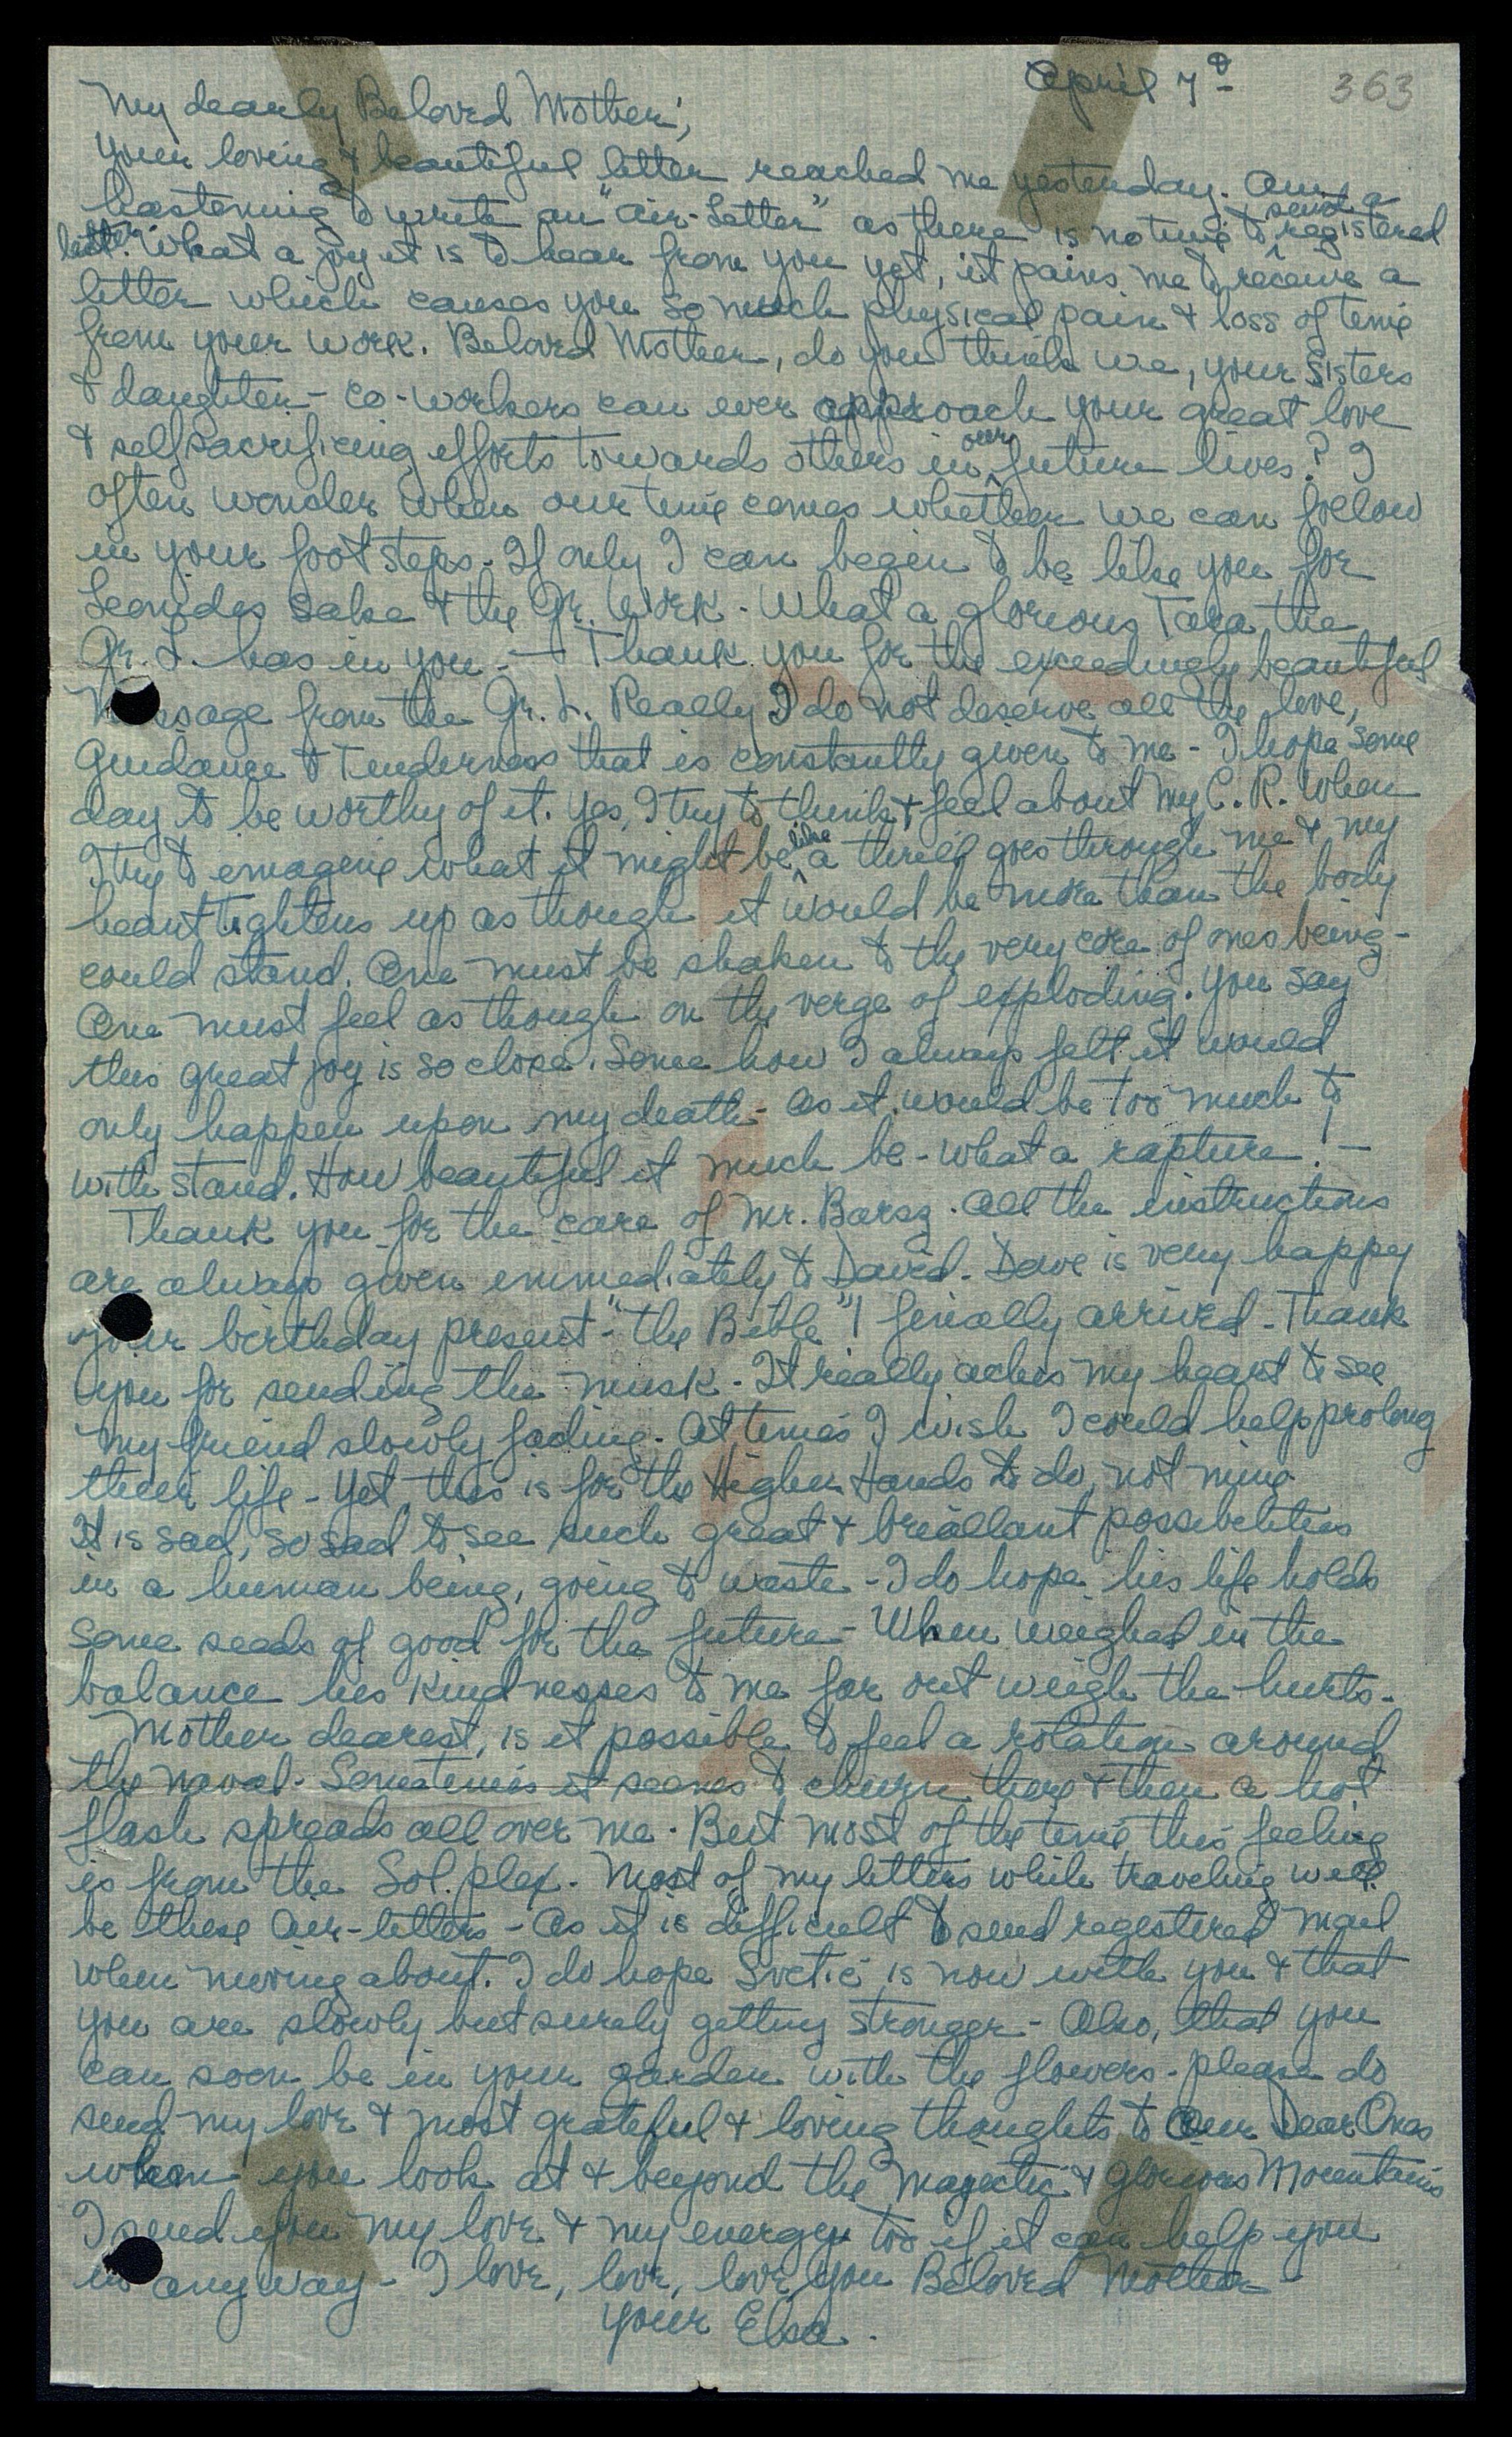 April 7th
363
My dearly Beloved Mother,
Your loving & beautiful letter reached me yesterday. Am
hastening to write an "Air-Letter" as there is no time to send a registered
letter. What a joy it is to hear from you yet, it pains me to receive a
letter which causes you so much physical pain & loss of time
from your work. Beloved Mother, do you think we, your sisters
& daughter-co-workers can ever approach your great love
& selfsacrificing efforts towards others in our future lives? I
often wonder when our time comes whether we can follow
in your foot steps. If only I can begin to be like you for
Leonidas sake & the Gr. Work - What a glorious Tara the
Gr. L. has in you - Thank you for the exceedingly beautiful
Message from the Gr. L. Really I do not deserve all the love,
Guidance & Tenderness that is constantly given to me - I hope some
day to be worthy of it. Yes, I try to think & feel about my C. R. When
I try to emagine what it might be like a thrill goes through me & my
heart tightens up as though it would be more than the body
could stand. One must be shaken to the very core of ones being -
One must feel as though on the verge of exploding. You say
this great joy is so close. Some how I always felt it would
only happen upon my death - as it would be too much to
with stand. How beautiful it much be - what a rapture! -
Thank you for the care of Mr. Barsz. All the instructions
are always given immediately to David. Dave is very happy
your birthday present - "the Bible"! finally arrived - Thank
you for sending the musk - It really aches my heart to see
my friend slowly fading. At times I wish I could help prolong
their life - Yet, this is for the Higher Hands to do, not mine
It is sad, so sad to see such great & breallant possibelities
in a human being, going to waste - I do hope his life holds
some seeds of good for the future - When weighed in the
balance his kindnesses to me far out weigh the hurts.
Mother dearest, is it possible to feel a rotation around
the naval. Sometimes it seems to churn there & then a hot
flash spreads all over me. But most of the time this feeling
is from the Sol. plex. Most of my letters while traveling will
be these Air-letters - As it is difficult to send regestered mail
when moving about. I do hope Svetic is now with you & that
you are slowly but surely getting stronger - Also, that you
can soon be in your garden with the flowers - please do
send my love & most grateful & loving thoughts to Our Dear Ones
when you look at & beyond the Magestic & Glorious Mountains
I send you my love & my energy too if it can help you
in any way - I love, love, love you Beloved Mother -
Your Elsa.